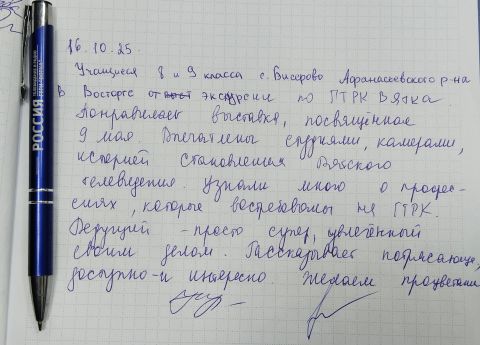 16.10.25.
Учащиеся 8 и 9 класса с. Бисерово Афанасьевского р-на
в Восторге от экскурсии по ГТРК Вятка.
Понравилась выставка, посвящённая
9 мая. Впечатлены студиями, камерами,
историей становления Вятского
телевидения. Узнали много о профес-
сиях, которые востребованы на ГТРК.
Ведущий - просто супер, увлечённый
своим делом. Рассказывает потрясающе,
доступно и интересно. Желаем процветания
РОССИЯ